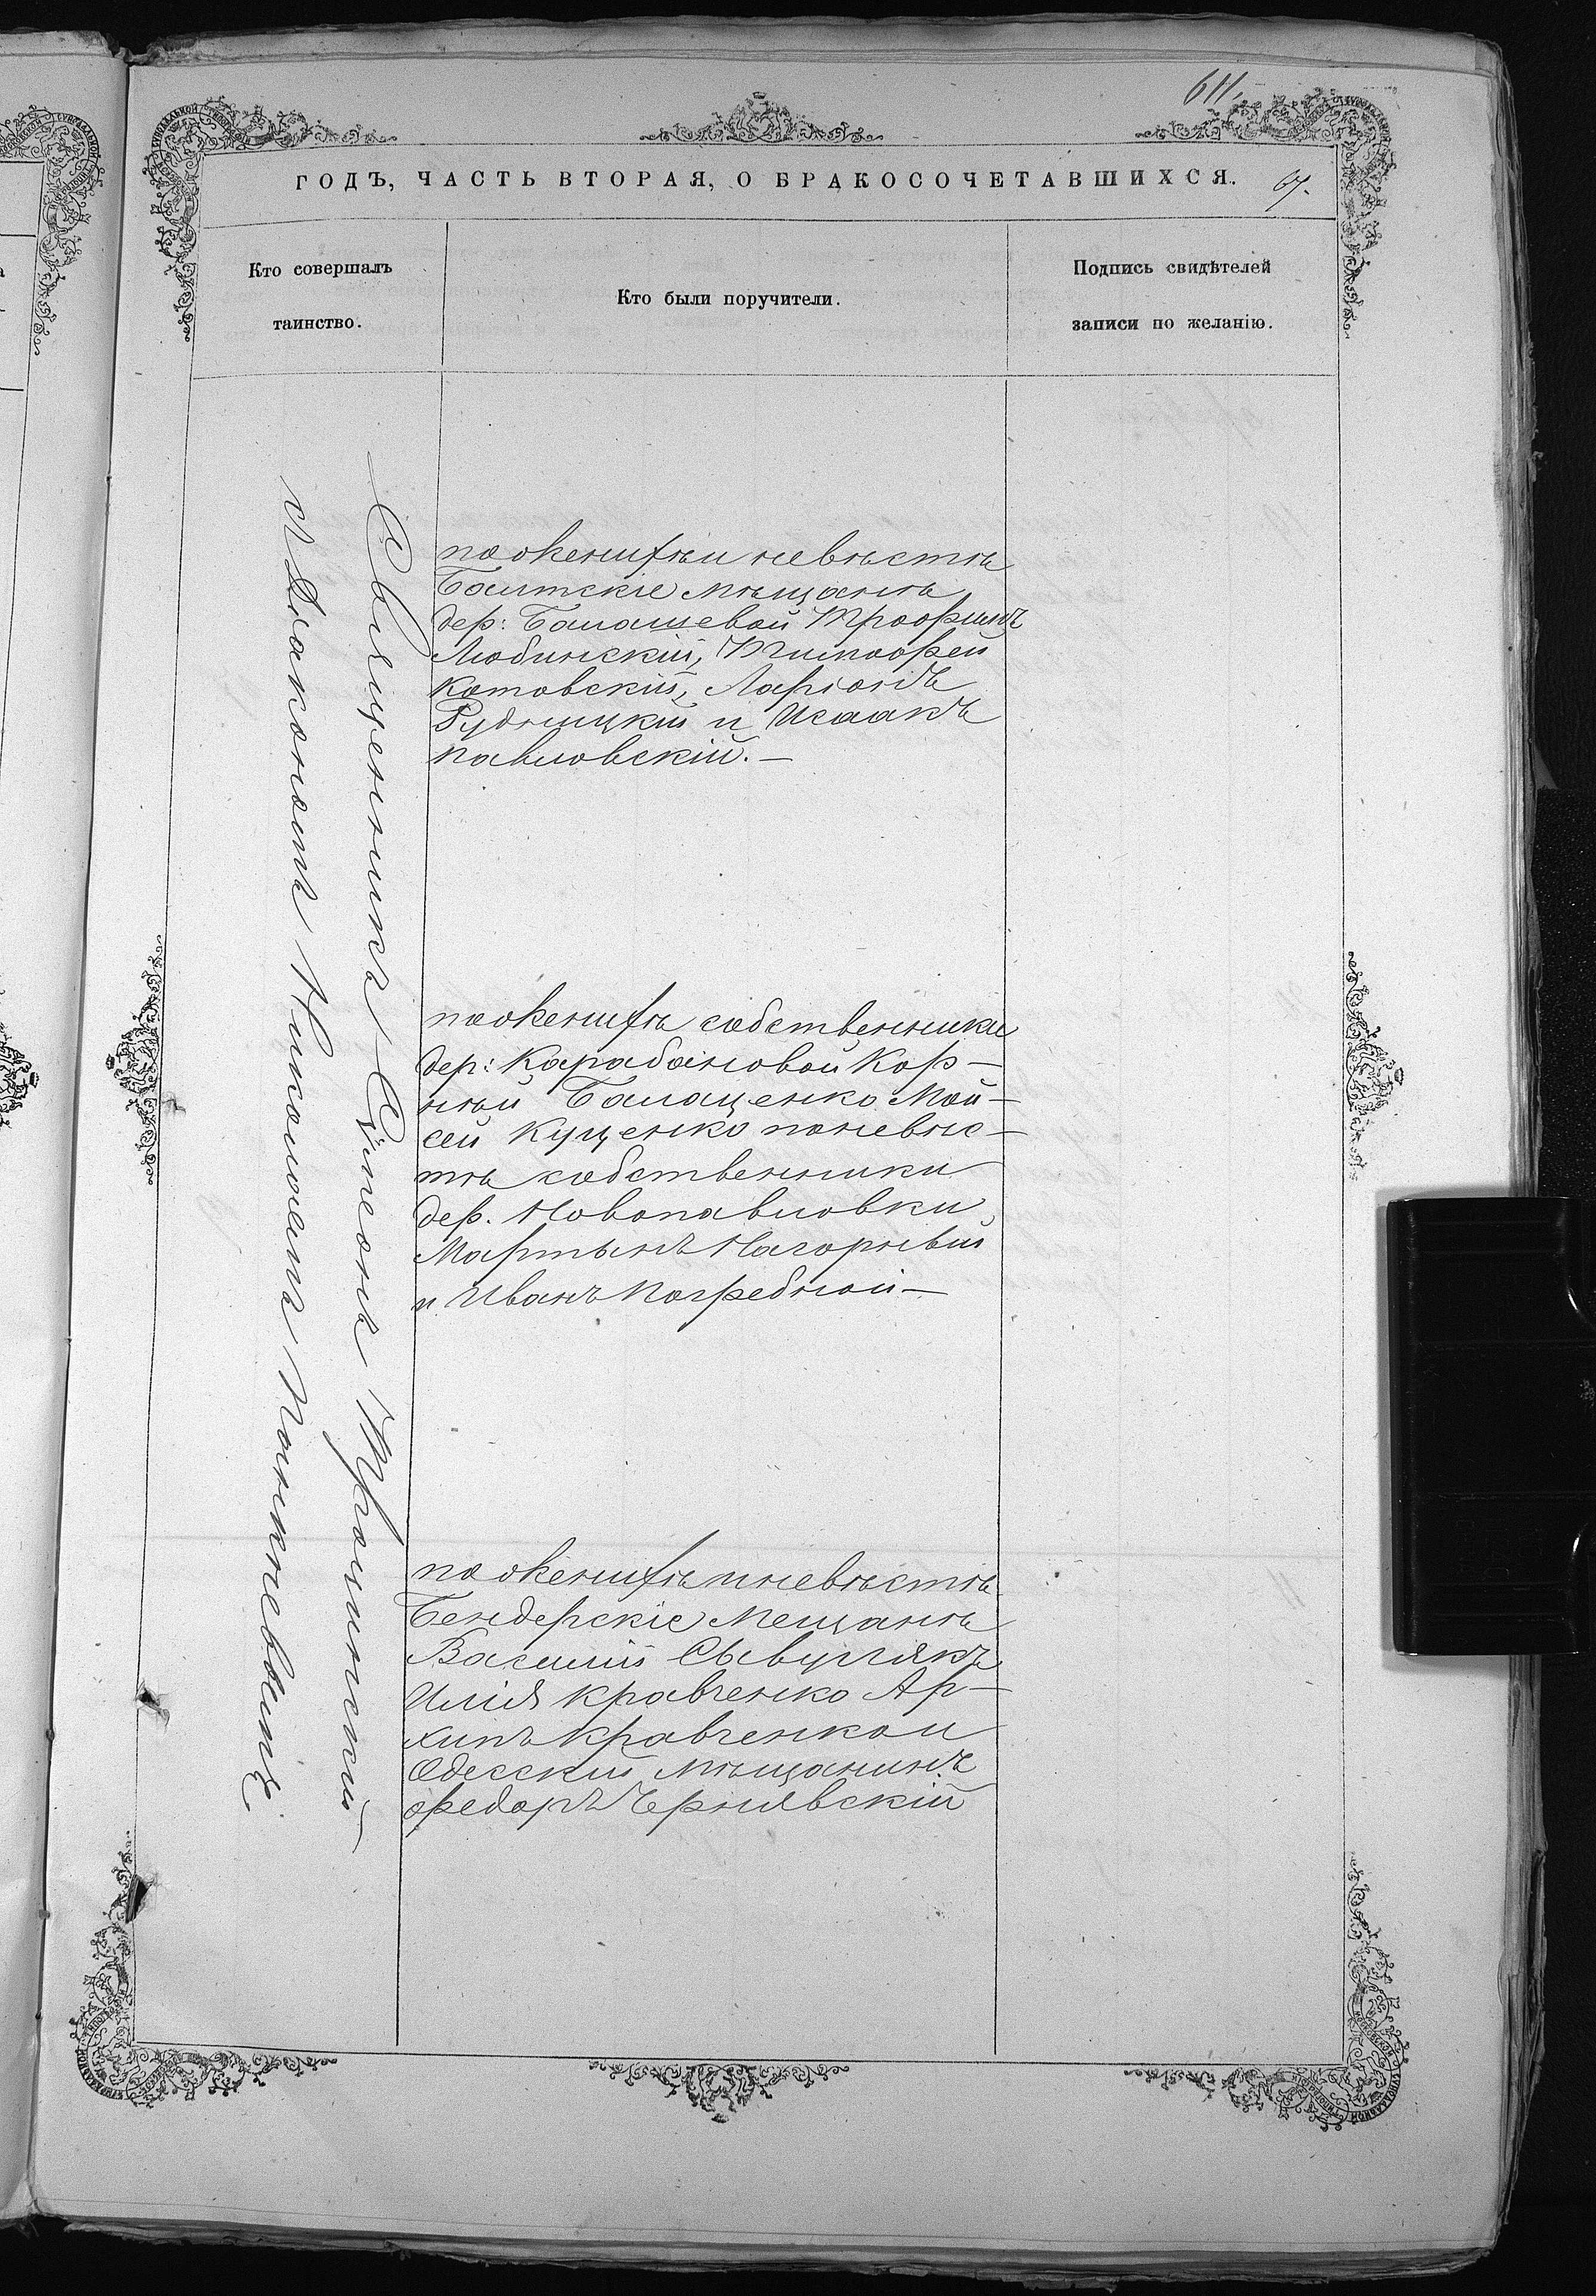 611.
ГОДЪ, ЧАСТЬ ВТОРАЯ, О БРАКОСОЧЕТАВШИХСЯ.
67.
Кто совершалъ
таинство.
Кто были поручители.
Подпись свидѣтелей
записи по желанію.
Священникъ Симеонъ Троцинскій
с Діакономъ Николаемъ
по женихѣ и невѣстѣ
Балтскіе мѣщанѣ
дер: Балашевой Трофимъ
Любинскій, Тимофей
Котовскій, Ларіонъ
Рудницкій и Исаакъ
Павловскій. —
по женихѣ собственники
дер: Карабановой Кор-
нѣй Балаценко Мой-
сей Куценко по невѣс-
тѣ собственники
дер. Новопавловки
Мартынъ Нагорный
и Иванъ Погребной —
по женихѣ и невѣстѣ
Бендерскіе Мещанѣ
Василій Сывулякъ
Илія Кравченко Ар-
хипъ Кравченко и
Одесскій мѣщанинъ
Федоръ Чернявскій